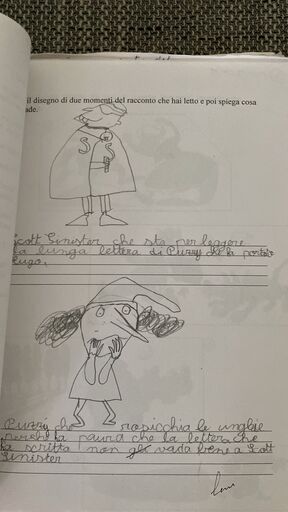 il disegno di due momenti del racconto che hai letto e poi spiega cosa
ade.
S S
Scott Sinister che sta per leggere
la lunga lettera di Puzzy che la portato
Lugo.
Puzzy che rosicchia le unghie
perché ha paura che la lettera che
ha scritto non vada bene a Scott
Sinister